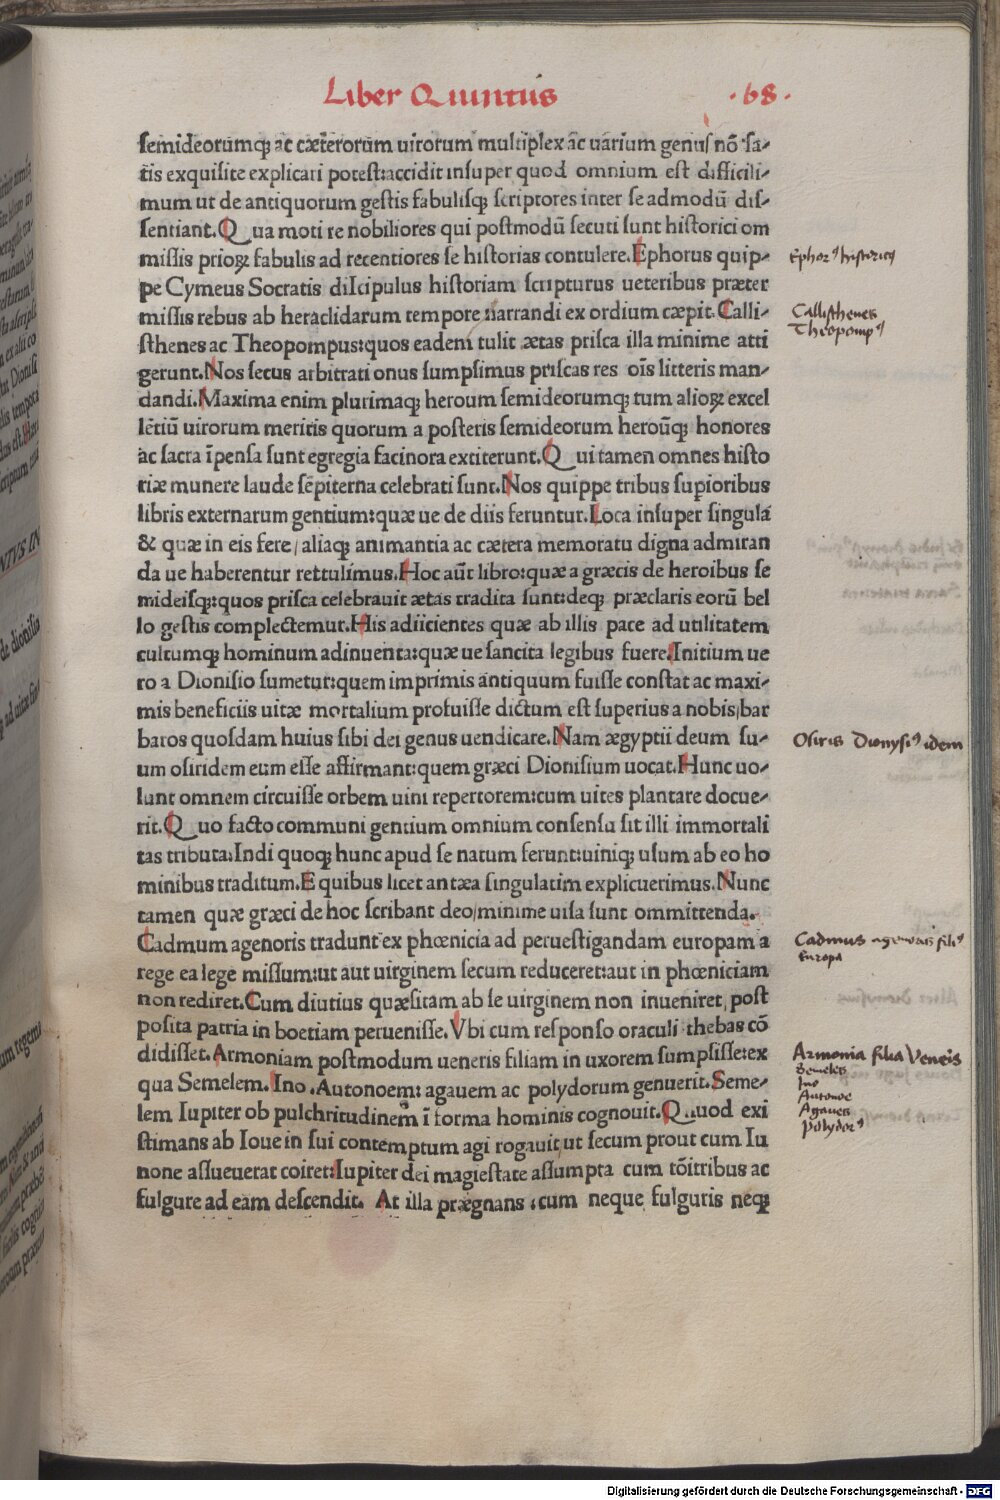 Liber Quintus
·68·
ſemideorumq; ac cæterorum uirorum multiplex ac uarium genus nõ ſa-
tis exquiſite explicari poteſt:accidit inſuper quod omnium eſt difficili-
mum ut de antiquorum geſtis fabuliſq; ſcriptores inter ſe admodũ diſ-
ſentiant.Qua moti re nobiliores qui poſtmodũ ſecuti ſunt hiſtorici om
miſſis prioꝝ fabulis ad recentiores ſe hiſtorias contulere.Ephorus quip-
pe Cymeus Socratis diſcipulus hiſtoriam ſcripturus ueteribus præter
miſſis rebus ab heraclidarum tempore narrandi ex ordium cæpit.Calli-
ſthenes ac Theopompus:quos eadem tulit ætas priſca illa minime atti
gerunt.Nos ſecus arbitrati onus ſumpſimus priſcas res oĩs litteris man-
dandi.Maxima enim plurimaq; heroum ſemideorumq; tum alioꝝ excel
lẽtiũ uirorum meritis quorum a poſteris ſemideorum heroũq; honores
ac ſacra ĩpenſa ſunt egregia facinora extiterunt.Qui tamen omnes hiſto
riæ munere laude ſẽpiterna celebrati ſunt.Nos quippe tribus ſupioribus
libris externarum gentium:quæ ue de diis feruntur.Loca inſuper ſingula
& quæ in eis fere/aliaq; animantia ac cætera memoratu digna admiran
da ue haberentur rettulimus.Hoc aũt libro:quæ a græcis de heroibus ſe
mideiſq;:quos priſca celebrauit ætas tradita ſunt:deq; præclaris eorũ bel
lo geſtis complectemur.His adiicientes quæ ab illis pace ad utilitatem
cultumq; hominum adinuenta:quæ ue ſancita legibus fuere.Initium ue
ro a Dioniſio ſumetur:quem imprimis antiquum fuiſſe conſtat ac maxi-
mis beneficiis uitæ mortalium profuiſſe dictum eſt ſuperius a nobis/bar
baros quoſdam huius ſibi dei genus uendicare.Nam ægyptii deum ſu-
um oſiridem eum eſſe affirmant:quem græci Dioniſium uocat.Hunc uo-
lunt omnem circuiſſe orbem uini repertorem:cum uites plantare docue-
rit.Quo facto communi gentium omnium conſenſu ſit illi immortali
tas tributa:Indi quoq; hunc apud ſe natum ferunt:uiniq; uſum ab eo ho
minibus traditum.E quibus licet antæa ſingulatim explicuerimus.Nunc
tamen quæ græci de hoc ſcribant deo/minime uiſa ſunt ommittenda.
Cadmum agenoris tradunt ex phœnicia ad perueſtigandam europam a
rege ea lege miſſum:ut aut uirginem ſecum reduceret:aut in phœniciam
non rediret.Cum diutius quæſitam ab ſe uirginem non inueniret, poſt
poſita patria in boetiam perueniſſe.Vbi cum reſponſo oraculi thebas cõ
didiſſet.Armoniam poſtmodum ueneris filiam in uxorem ſumpſiſſe:ex
qua Semelem.Ino.Autonoem: agauem ac polydorum genuerit.Seme-
lem Iupiter ob pulchritudinem ĩ forma hominis cognouit.Quuod exi
ſtimans ab Ioue in ſui contemptum agi rogauit,ut ſecum prout cum Iu
none aſſueuerat coiret:Iupiter dei magieſtate aſſumpta cum tõitribus ac
fulgure ad eam deſcendit. At illa prægnans:cum neque fulguris neq;
Ephorꝰ hiſtoricꝰ
Calliſthenes
Theopompꝰ
Oſiris Dionyſiꝰ idem
Cadmus agenoris filiꝰ
Europa
Armonia filia Veneris
Semeles
Ino
Autonoe
Agaues
Polydorꝰ
Digitalisierung gefördert durch die Deutsche Forschungsgemeinschaft - DFG